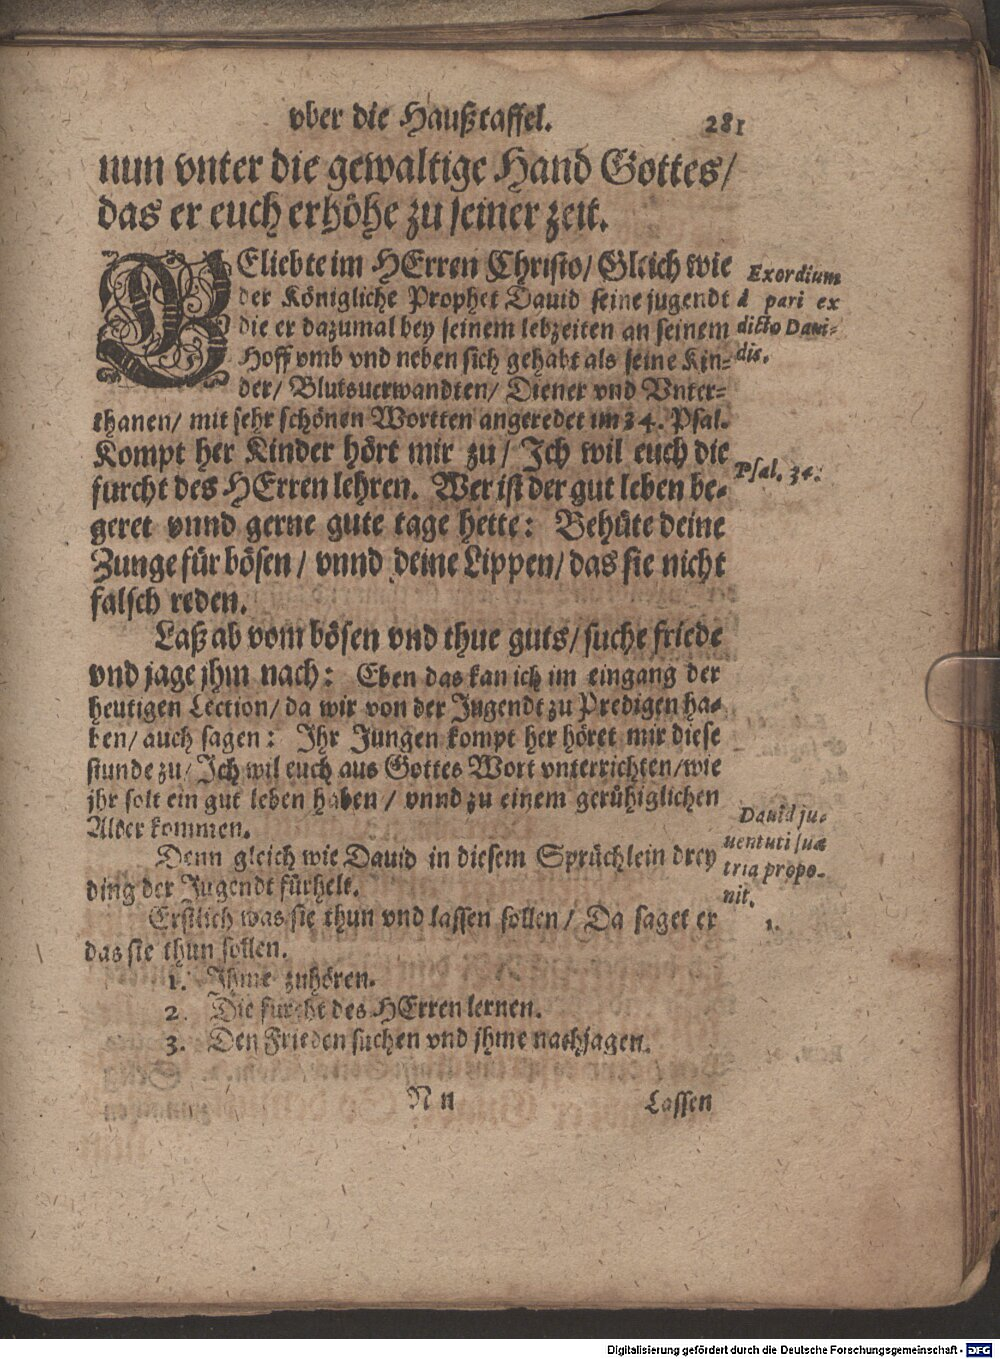 vber die Haußtaffel. 281
nun vnter die gewaltige Hand Gottes/
das er euch erhöhe zu seiner zeit.
BEliebte im HErren Christo/ Gleich wie
der Königliche Prophet Dauid seine jugendt
die er dazumal bey seinem lebzeiten an seinem
Hoff vmb vnd neben sich gehabt als seine Kin-
der/ Blutsuerwandten/ Diener vnd Vnter-
thanen/ mit sehr schönen Wortten angeredet im 34. Psal.
Kompt her Kinder hört mir zu/ Ich wil euch die
furcht des HErren lehren. Wer ist der gut leben be-
geret vnnd gerne gute tage hette: Behüte deine
Zunge für bösen/ vnnd deine Lippen/ das sie nicht
falsch reden.
Laß ab vom bösen vnd thue guts/ suche friede
vnd jage jhm nach: Eben das kan ich im eingang der
heutigen Lection/ da wir von der Jugendt zu Predigen ha-
ben/ auch sagen: Ihr Jungen kompt her höret mir diese
stunde zu/ Ich wil euch aus Gottes Wort vnterrichten/ wie
jhr solt ein gut leben haben/ vnnd zu einem gerühiglichen
Alder kommen.
Denn gleich wie Dauid in diesem Sprüchlein drey
ding der Jugendt fürhelt.
Erstlich was sie thun vnd lassen sollen/ Da saget er
das sie thun sollen.
1. Ihme zuhören.
2. Die furcht des HErren lernen.
3. Den Frieden suchen vnd jhme nachjagen.
N n Lassen
Exordium
à pari ex
dicto Daui-
dis.
Psal. 34.
Dauid ju-
uentuti suæ
tria propo-
nit.
1.
Digitalisierung gefördert durch die Deutsche Forschungsgemeinschaft - DFG